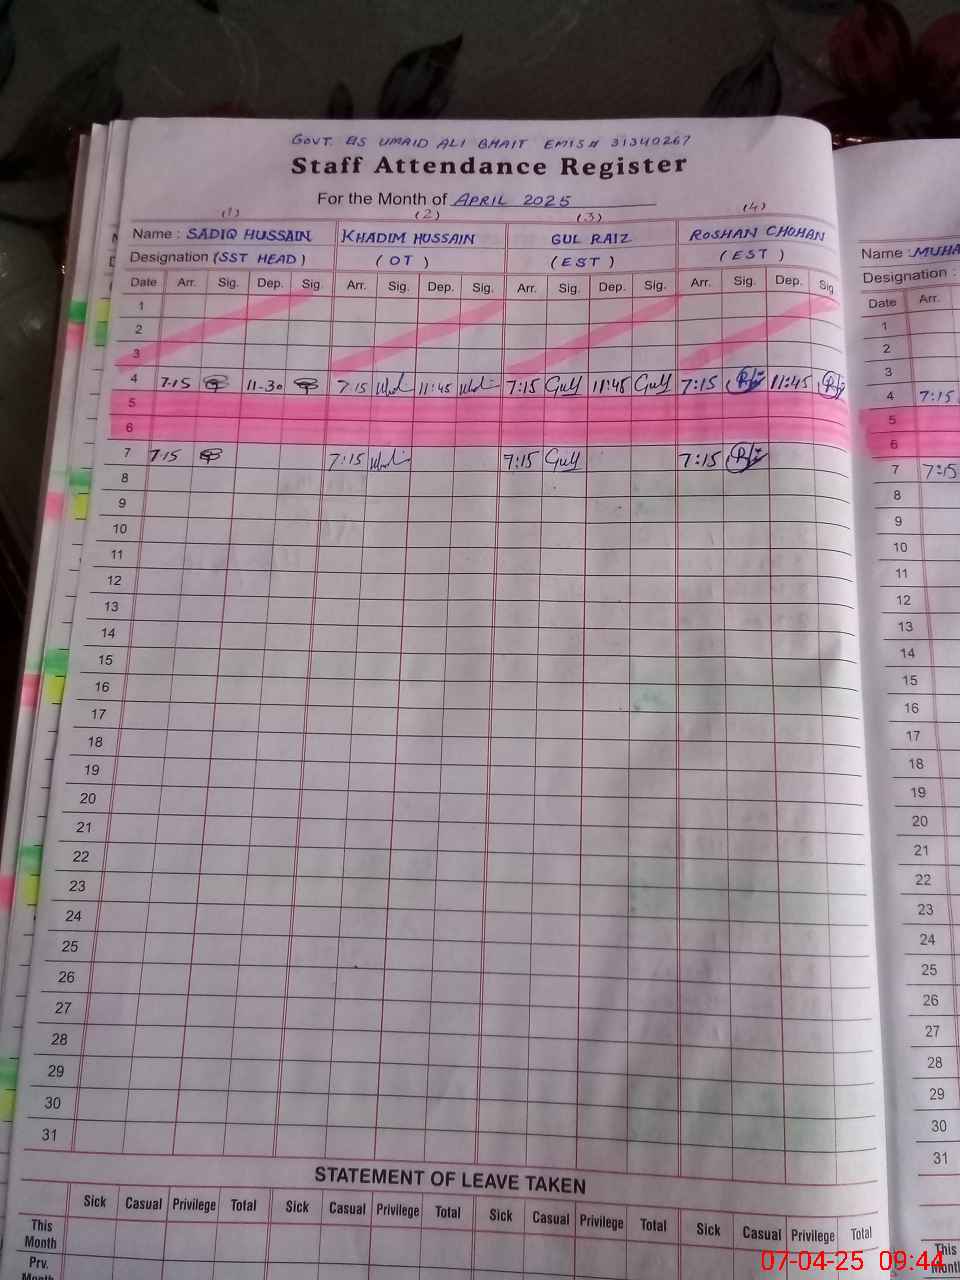 GOVT. ES UMAID ALI BHAIT EMIS# 31340267
Staff Attendance Register
For the Month of APRIL 2025
(1) (2) (3) (4)
Name : SADIQ HUSSAIN KHADIM HUSSAIN GUL RAIZ ROSHAN CHOHAN
Designation (SST HEAD) (OT) (EST) (EST)
Date Arr. Sig. Dep. Sig. Arr. Sig. Dep. Sig. Arr. Sig. Dep. Sig. Arr. Sig. Dep. Sig.
1
2
3
4 7:15 11-30 7:15 11:45 7:15 Gulf 11:45 Gulf 7:15 11:45
5
6
7 7:15 7:15 7:15 Gulf 7:15
8
9
10
11
12
13
14
15
16
17
18
19
20
21
22
23
24
25
26
27
28
29
30
31
STATEMENT OF LEAVE TAKEN
Sick Casual Privilege Total Sick Casual Privilege Total Sick Casual Privilege Total Sick Casual Privilege Total
This Month
Prv. Month
Name : MUHA
Designation :
Date Arr.
1
2
3
4 7:15
5
6
7 7:15
8
9
10
11
12
13
14
15
16
17
18
19
20
21
22
23
24
25
26
27
28
29
30
31
This Month
07-04-25 09:44